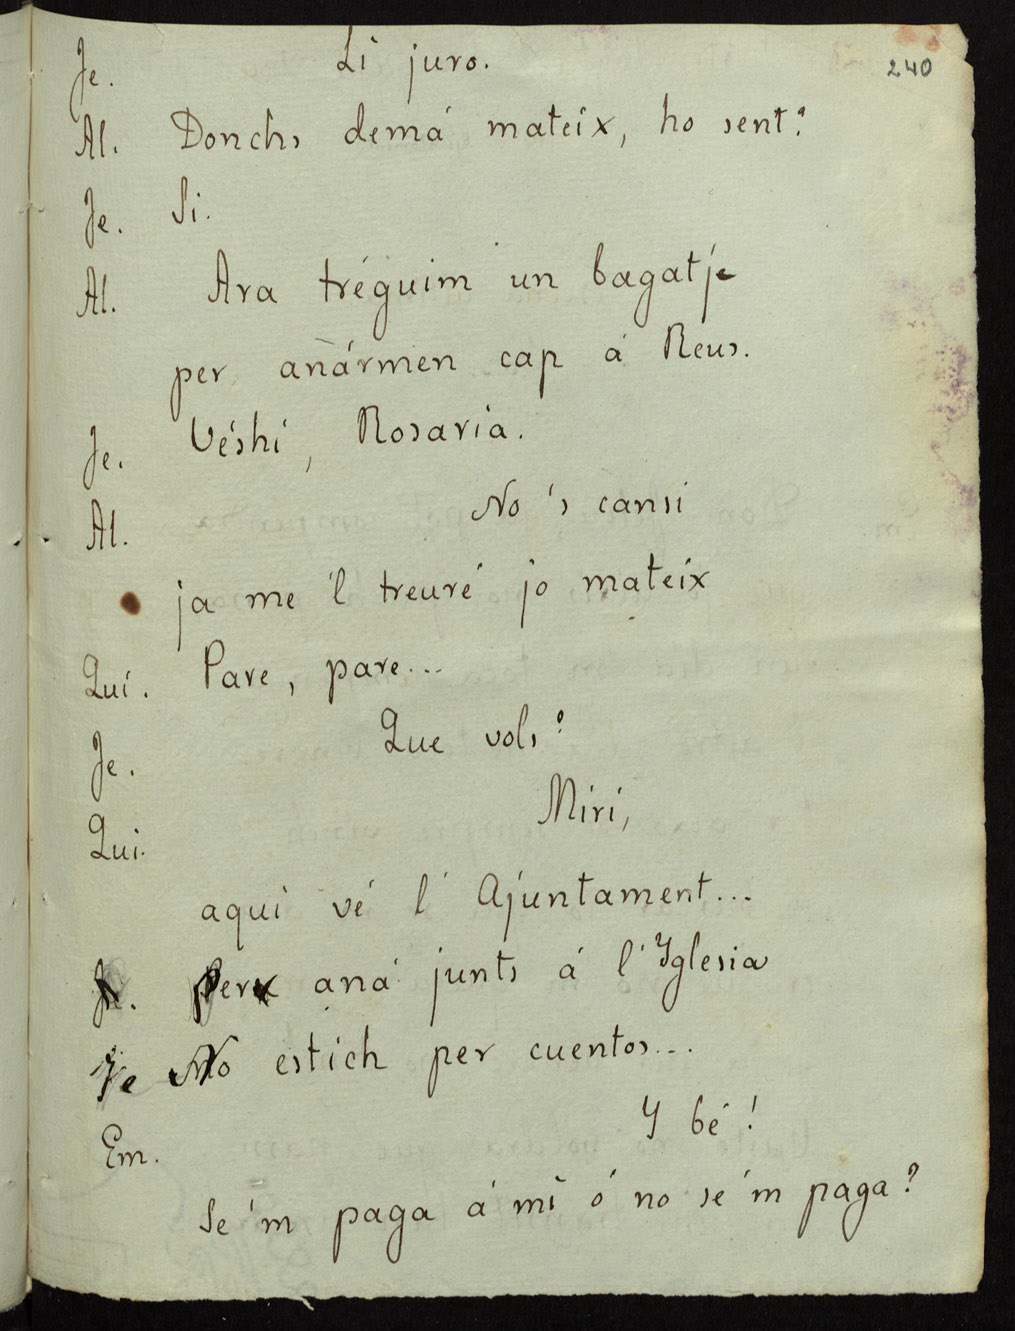 240
Je. Li juro.
Al. Donchs demá mateix, ho sent?
Je. Si.
Al. Ara tréguim un bagatje
per anármen cap á Reus.
Je. Véshi, Rosaria.
Al. No 's cansi
ja me 'l treuré jo mateix
Qui. Pare, pare...
Je. Que vols?
Qui. Miri,
aqui vé l' Ajuntament...
Per aná junts á l' Yglesia
Je No estich per cuentos...
Em. Y bé!
Se 'm paga á mi ó no se 'm paga?